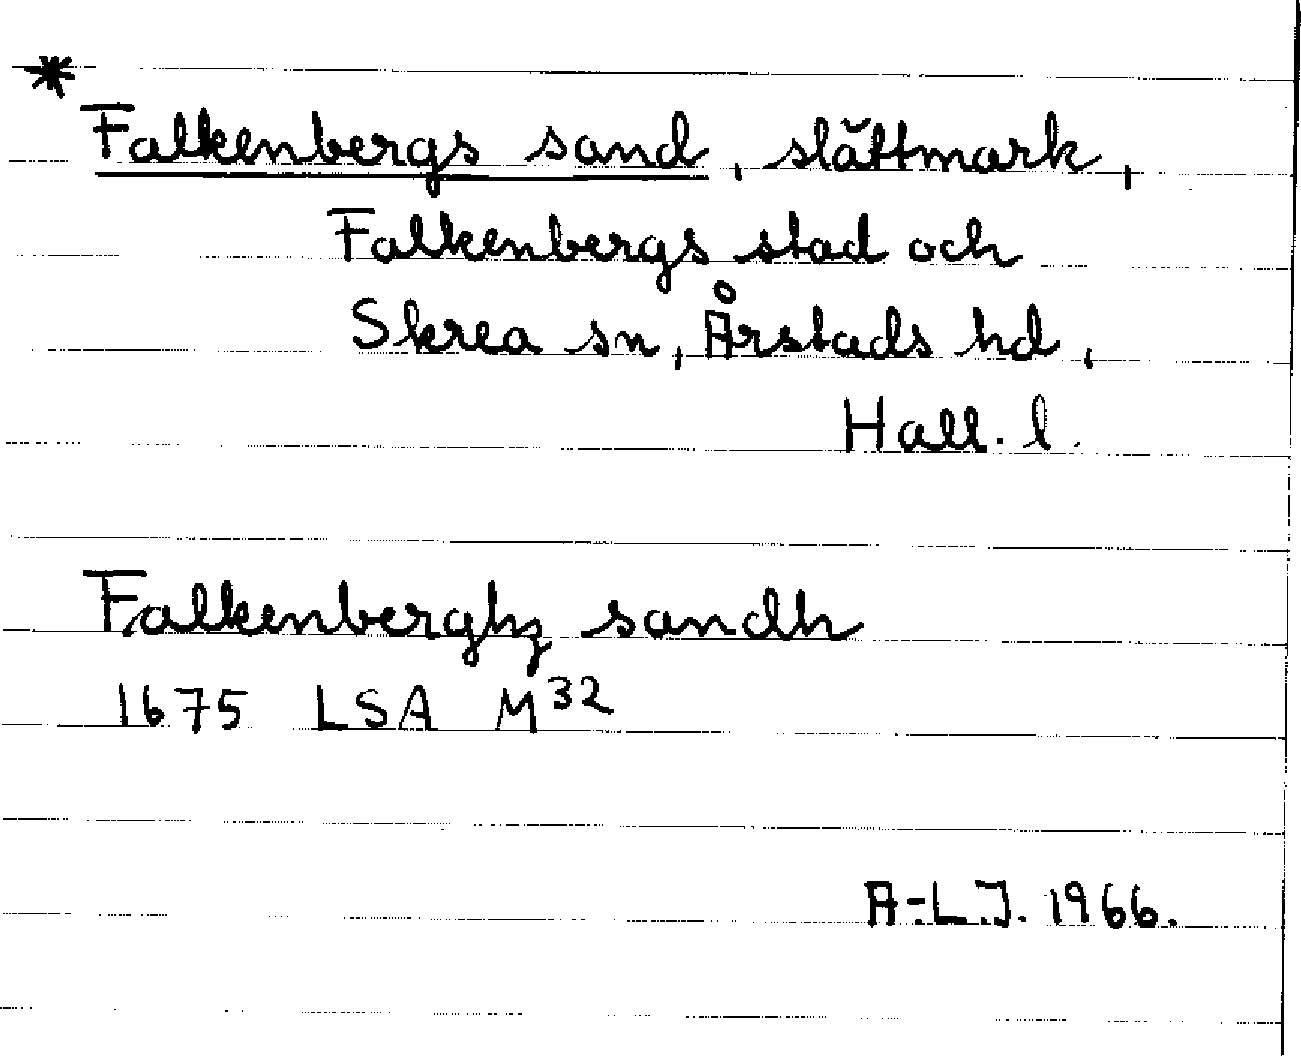 *
Falkenbergs sand, slättmark,
Falkenbergs stad och
Skrea sn, Årstads hd,
Hall. l.
Falkenberghz sandh
1675 LSA M32
A-L.J. 1966.